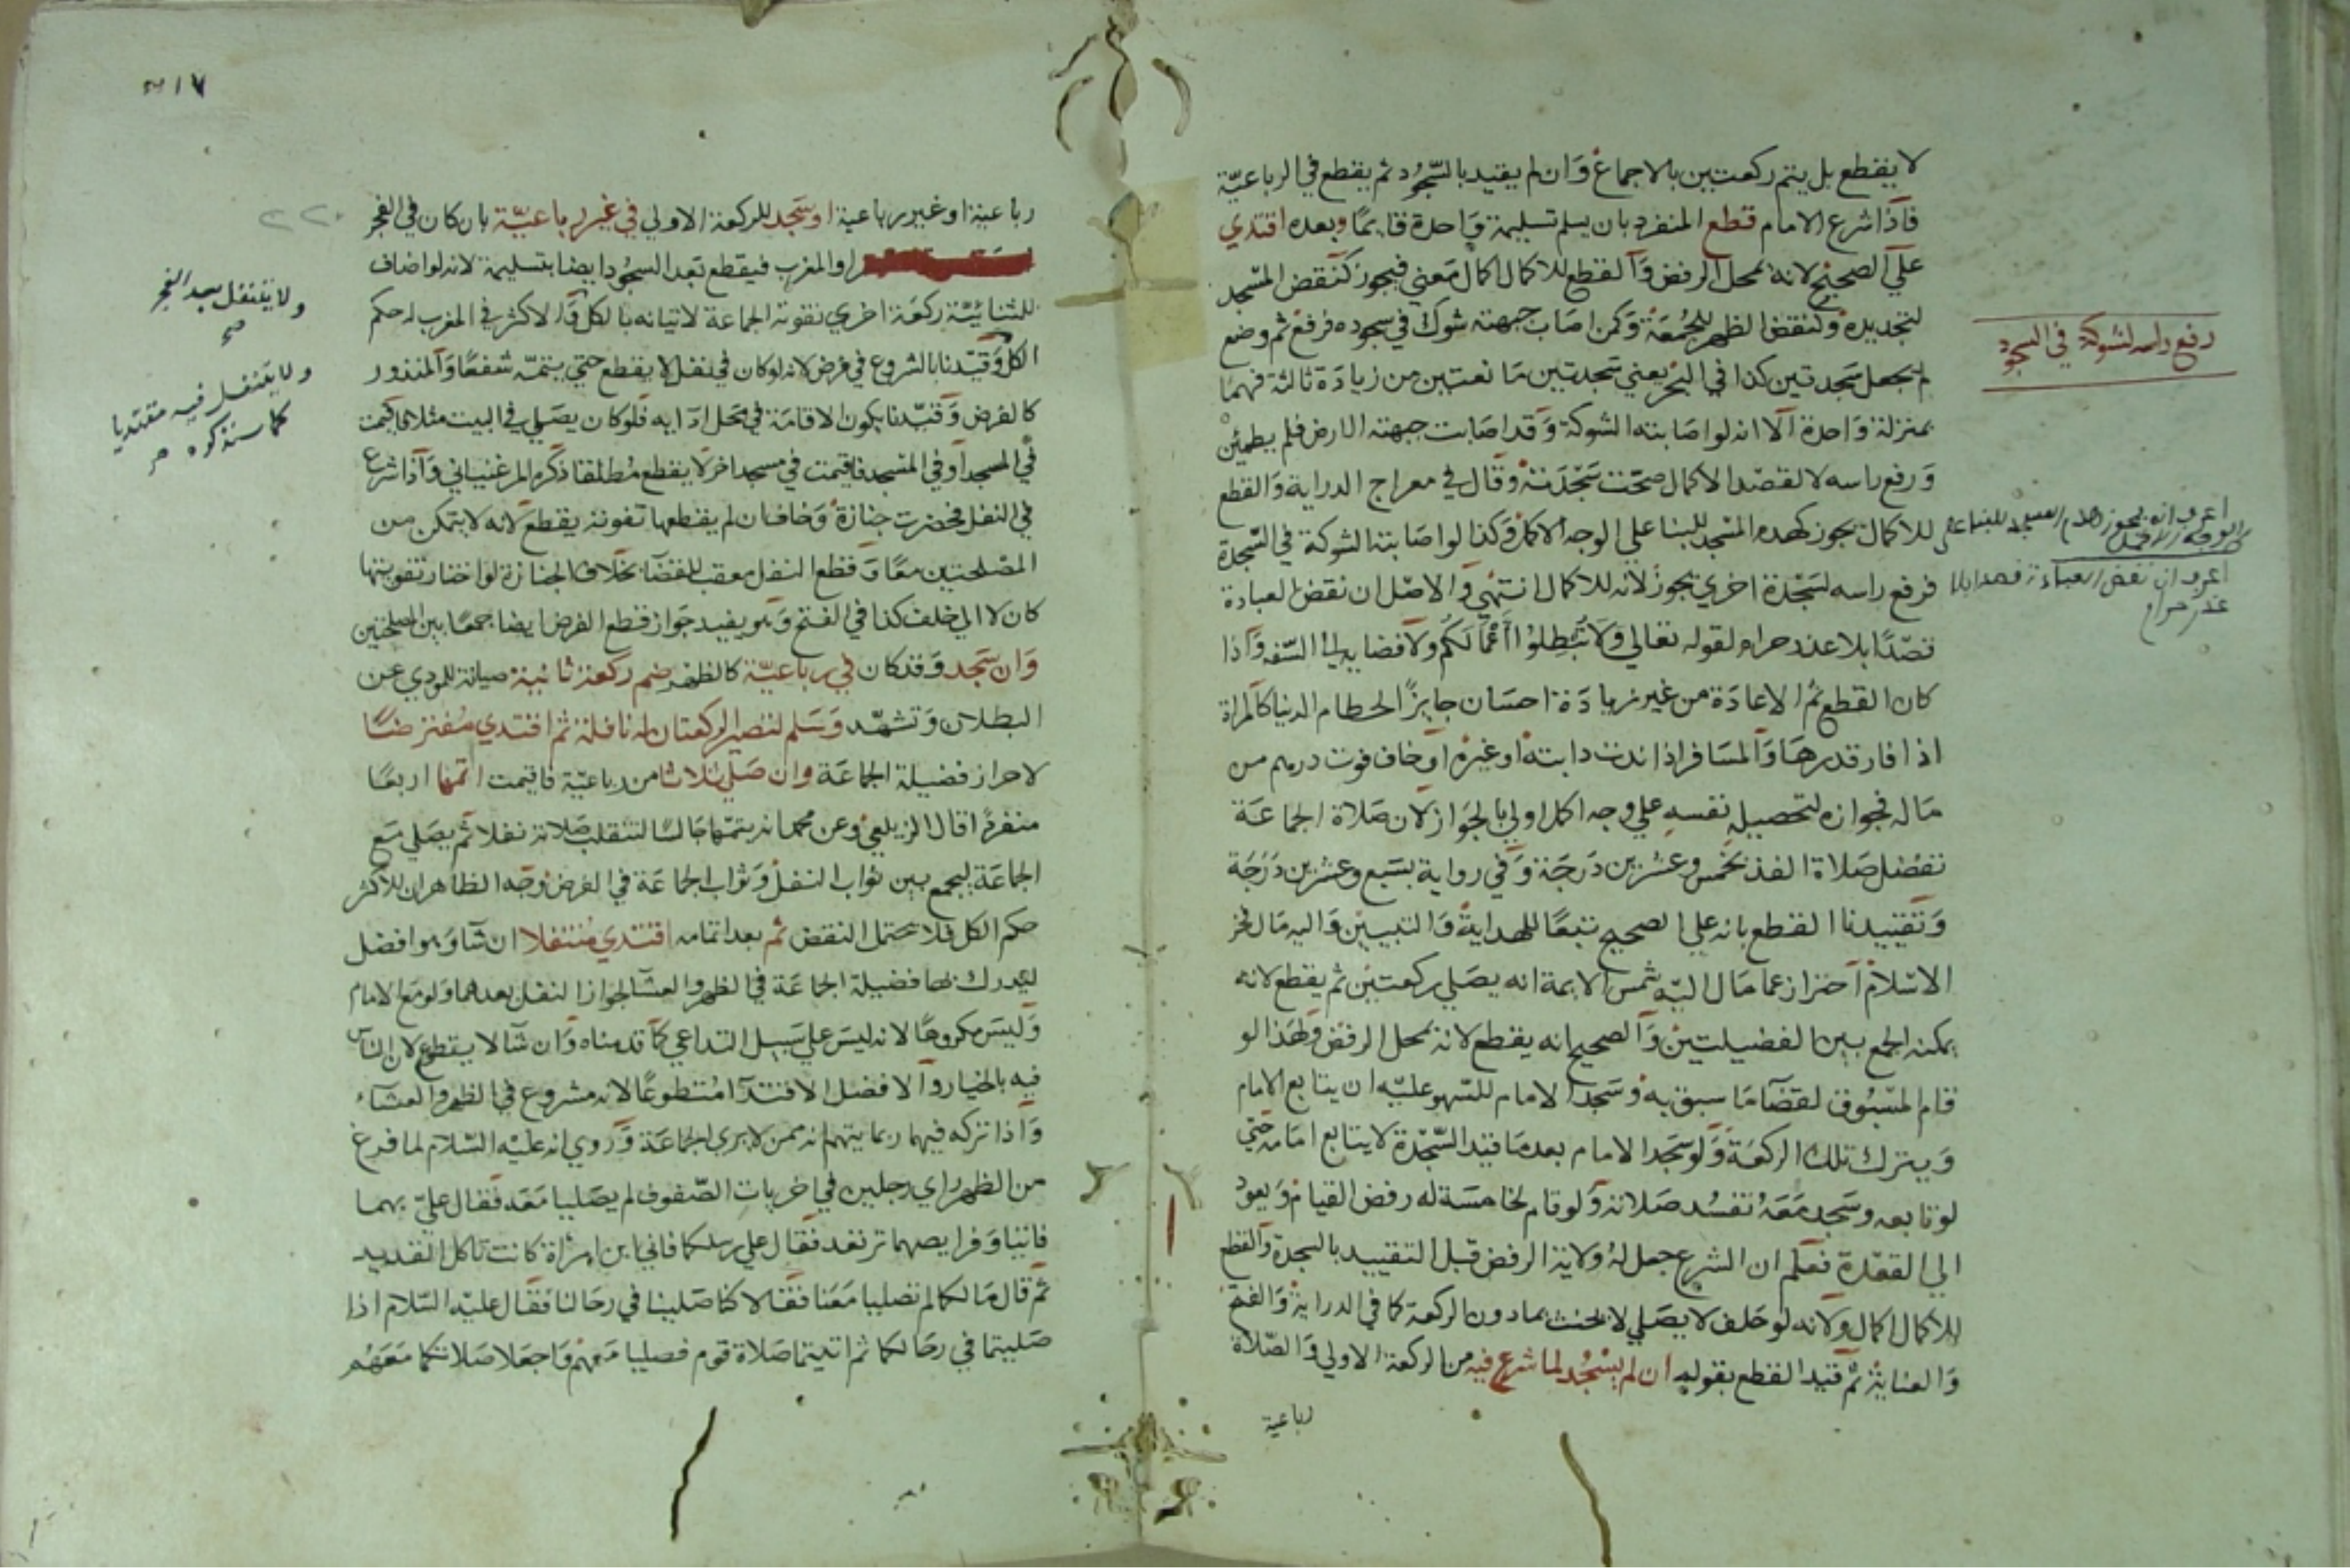 لا يقطع بل يتم ركعتين بالاجماع وان لم يقيد بالسجود ثم يقطع في الرباعية
فاذا شرع الامام قطع المنفرد بان يسلم تسليمة واحدة قايما وبعده اقتدي
علي الصحيح لانه بمحل الرفض والقطع للاكمال اكمال معني فيجوز كنقض المسجد
لتجديده ولنقض الظهر للجمعة وكمن اصاب جبهته شوك في سجوده فرفع ثم وضع
لم يجعل سجدتين كذا في البحر يعني سجدتين مانعتين من زيادة ثالثة فهما
بمنزلة واحدة الا انه لو اصابته الشوكة وقد اصابت جبهته الارض فلم يطمئن
ورفع راسه لا لقصد الاكمال صحت سجدته وقال في معراج الدراية والقطع
للاكمال يجوز كهدم المسجد للبنا علي الوجه الاكمل وكذا لو اصابته الشوكة في السجدة
فرفع راسه لسجدة اخري يجوز لانه للاكمال انتهي والاصل ان نقض العبادة
قصدا بلا عذر حرام لقوله تعالي ولا تبطلوا اعمالكم ولافضايه الي السفه واذا
كان القطع ثم الاعادة من غير زيادة احسان جايزا لحطام الدنيا كالمراة
اذا فار قدرها والمسافر اذا ندت دابته او غيره او خاف فوت درهم من
ماله فجوازه لتحصيله نفسه علي وجه اكمل اولي بالجواز لان صلاة الجماعة
تفضل صلاة الفذ بخمس وعشرين درجة وفي رواية بسبع وعشرين درجة
وتقييدنا القطع بانه علي الصحيح تبعا للهداية والتبيين واليه مال فخر
الاسلام احتراز عما مال اليه شمس الايمة انه يصلي ركعتين ثم يقطع لانه
يمكنه الجمع بين الفضيلتين والصحيح انه يقطع لانه بمحل الرفض ولهذا لو
قام المسبوق لقضا ما سبق به وسجد الامام للسهو عليه ان يتابع الامام
ويترك تلك الركعة ولو سجد الامام بعد ما قيد السجدة لا يتابع امامه حتي
لو تابعه وسجد معه تفسد صلاته ولو قام لخامسة له رفض القيام ويعود
الي القعدة فعلم ان الشرع جعل له ولاية الرفض قبل التقييد بالسجدة والقطع
للاكمال اكمال ولانه لو حلف لا يصلي لا يحنث بما دون الركعة كما في الدراية والفتح
والعناية ثم قيد القطع بقوله ان لم يسجد لما شرع فيه من الركعة الاولي والصلاة
رباعية
رفع راسه لشوكة في السجود
٣١٧
رباعية او غير رباعية او سجد للركعة الاولي في غير رباعية بان كان في الفجر
او المغرب فيقطع بعد السجود ايضا بتسليمة لانه لو اضاف
للثنائية ركعة اخري تفوته الجماعة لاتيانه بالكل والاكثر في المغرب له حكم
الكل وقيدنا بالشروع في فرض لانه لو كان في نفل لا يقطع حتي يتمه شفعا والمنذور
كالفرض وقيدنا بكون الاقامة في محل ادايه فلو كان يصلي في البيت مثلا فاقيمت
في المسجد او في المسجد فاقيمت في مسجد اخر لا يقطع مطلقا ذكره المرغيناني واذا شرع
في النفل فحضرت جنازة وخاف ان لم يقطعها تفوته يقطع لانه لا يتمكن من
المصلحتين معا وقطع النفل معقب للقضا بخلاف الجنازة لو اختار تفويتها
كان لا الي خلف كذا في الفتح وهو يفيد جواز قطع الفرض ايضا جمعا بين المصلحتين
وان سجد وقد كان في رباعية كالظهر ضم ركعة ثانية صيانة للمودي عن
البطلان وتشهد وسلم لتصير الركعتان له نافلة ثم اقتدي مفترضا
لاحراز فضيلة الجماعة وان صلي ثلاثا من رباعية فاقيمت اتمها اربعا
منفردا قال الزيلعي وعن محمد انه يتمها جالسا لتنقلب صلاته نفلا ثم يصلي مع
الجماعة ليجمع بين ثواب النفل وثواب الجماعة في الفرض وجه الظاهر ان للاكثر
حكم الكل فلا يحتمل النقض ثم بعد اتمامه اقتدي متنفلا ان شا وهو افضل
ليدرك بها فضيلة الجماعة في الظهر والعشا لجواز النفل بعدهما ولو مع الامام
وليس مكروها لانه ليس علي سبيل التداعي كما قدمناه وان شا لا يقطع لان الناس
فيه بالخيار والافضل الاقتدا متطوعا لانه مشروع في الظهر والعشاء
واذا تركه فيهما ربما يتهم انه ممن لا يري الجماعة وروي انه عليه السلام لما فرغ
من الظهر راي رجلين في اخريات الصفوف لم يصليا معه فقال علي بهما
فاتيا وفرايصهما ترتعد فقال علي رسلكما فاني ابن امراة كانت تاكل القديد
ثم قال ما لكما لم تصليا معنا فقالا كنا صلينا في رحالنا فقال عليه السلام اذا
صليتما في رحالكما ثم اتيتما صلاة قوم فصليا معهم واجعلا صلاتكما معهم
ولا يتنفل بعد الفجر
صح
ولا يتنفل فيه مقتديا
كما سنذكره